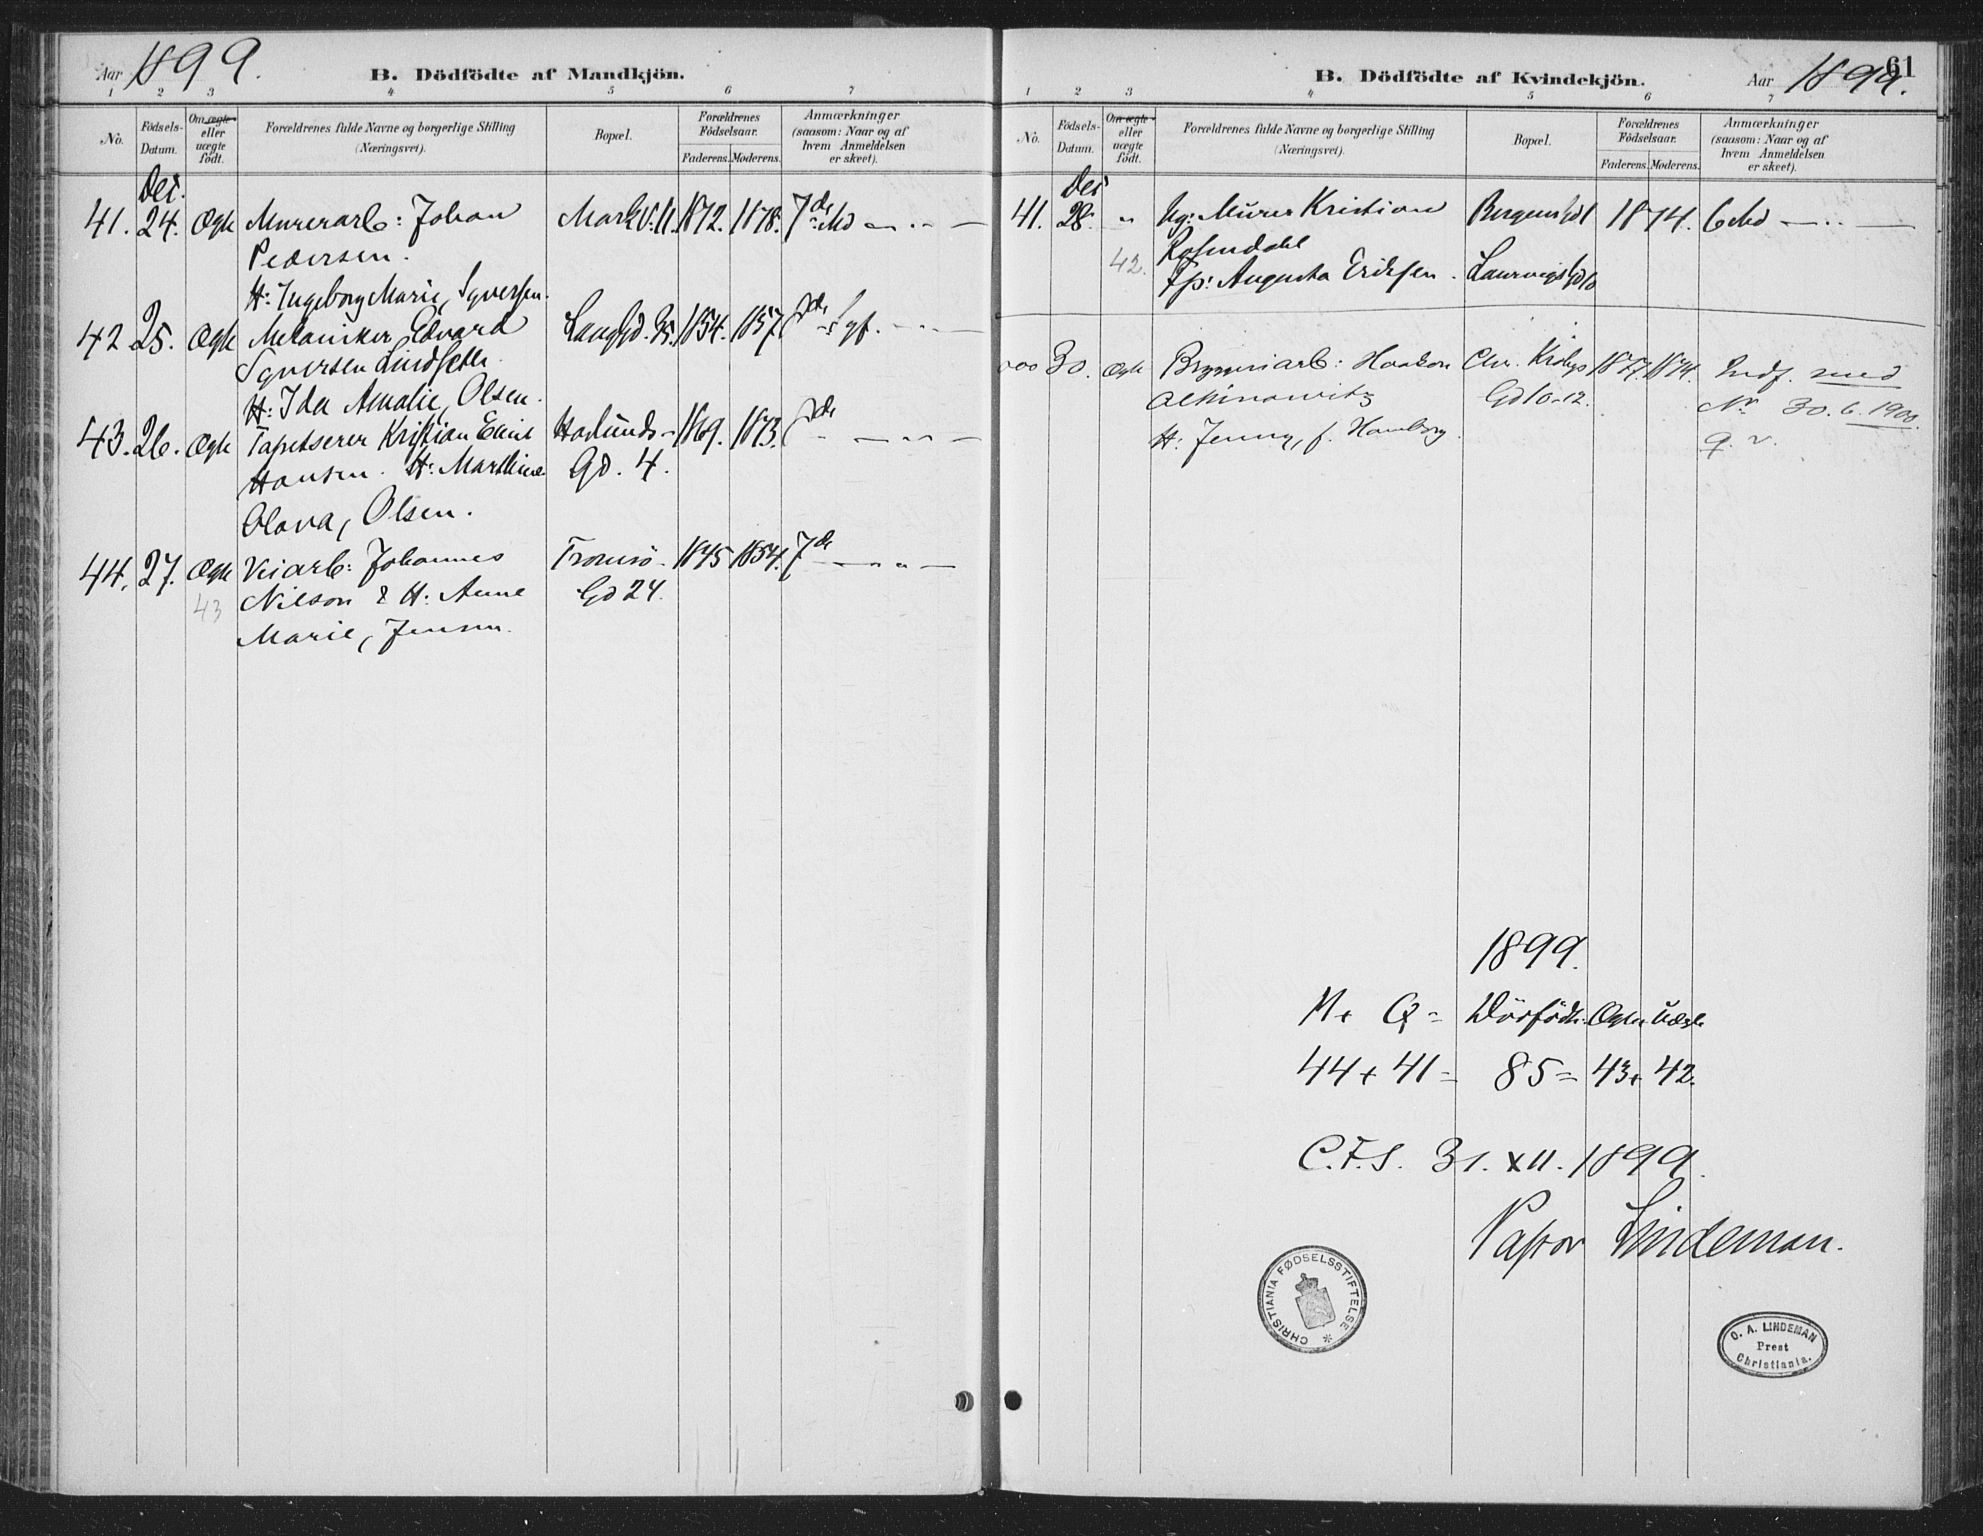 Aar 1899.
B. Dödfödte af Mandkjön.
1 2 3 4 5 6 7
No.
Födsels-
Datum.
Om ægte
eller
uægte
födt.
Forældrenes fulde Navne og borgerlige Stilling
(Næringsvei).
Bopæl.
Forældrenes
Födselsaar.
Faderens. Moderens.
Anmærkninger
(saasom: Naar og af
hvem Anmeldelsen
er skeet).
Des.
41. 24. Ægte Murerarb: Johan Markv. 11. 1872. 1878. 7de Md
Pedersen.
H: Ingeborg Marie, Syversen.
42 25. Ægte Mekaniker Edvard Langgd. 35. 1854. 1857
Syversen Lindseth
H: Ida Amalie, Olsen.
43. 26. Ægte Tapetserer Kristian Emil 1869. 1873.
Hansen. H: Marthine Gd. 4.
Olava, Olsen.
44. 27. Ægte Veiarb: Johannes Tromsö- 1845 1854. 7de
43 Nilson & H: Anne Gd 24.
Marie, Jensen.
B. Dödfödte af Kvindekjön.
Aar 1899.
61
1 2 3 4 5 6 7
No.
Födsels-
Datum.
Om ægte
eller
uægte
födt.
Forældrenes fulde Navne og borgerlige Stilling
(Næringsvei).
Bopæl.
Forældrenes
Födselsaar.
Faderens. Moderens.
Anmærkninger
(saasom: Naar og af
hvem Anmeldelsen
er skeet).
Des
41. 28. " Ug: Murer Kristian Bergensgd 1 1874. 6 Md
42. Rosendahl
Fp: Augusta Eriksen. Laurvigsgd 6
000 30. Ægte Bryggeriarb: Haakon Chr. Krohgs 1877. 1874. Indf. med
Gd 10-12. Nr 30.6.1900.
H: Jenny, f. Hamborg. q. v.
1899.
M + Q = Dödfödte: Ægte + Uægte
44 + 41 = 85 = 43 + 42.
C.F.S. 31. XII. 1899.
Pastor Lindeman.
CHRISTIANIA FØDSELSSTIFTELSE *
O. A. LINDEMAN
Prest
Christiania.